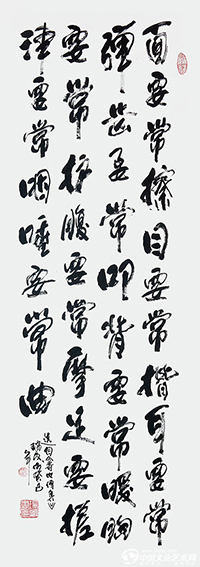 面要常擦目要常揩耳要常
彈齿要常叩背要常暖胸
要常护腹要常摩足要搓
津要常咽睡要常曲